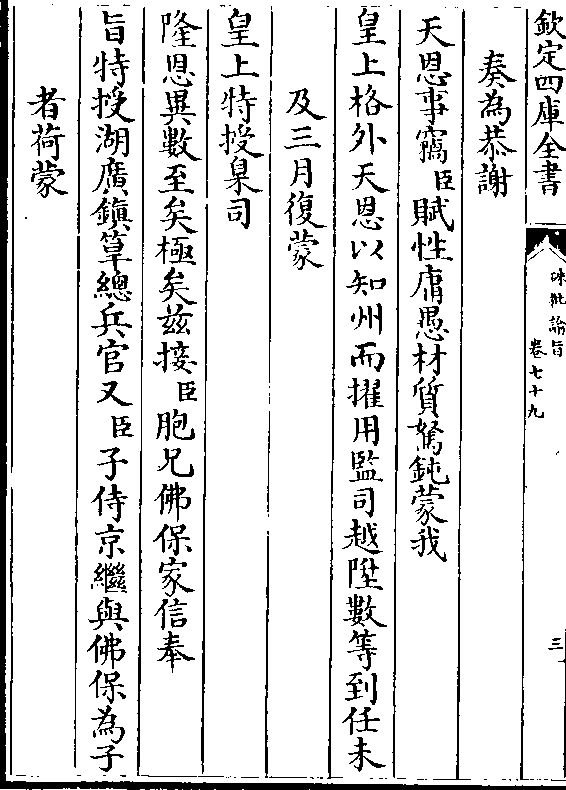 欽定四庫全書
硃批諭旨
卷七十九
三
奏為恭謝
天恩事竊臣賦性庸愚材質駑鈍蒙我
皇上格外天恩以知州而擢用監司越陞數等到任未
及三月復蒙
皇上特授臬司
隆恩異數至矣極矣兹接臣胞兄佛保家信奉
旨特授湖廣鎮筸總兵官又臣子侍京繼與佛保為子
者荷蒙